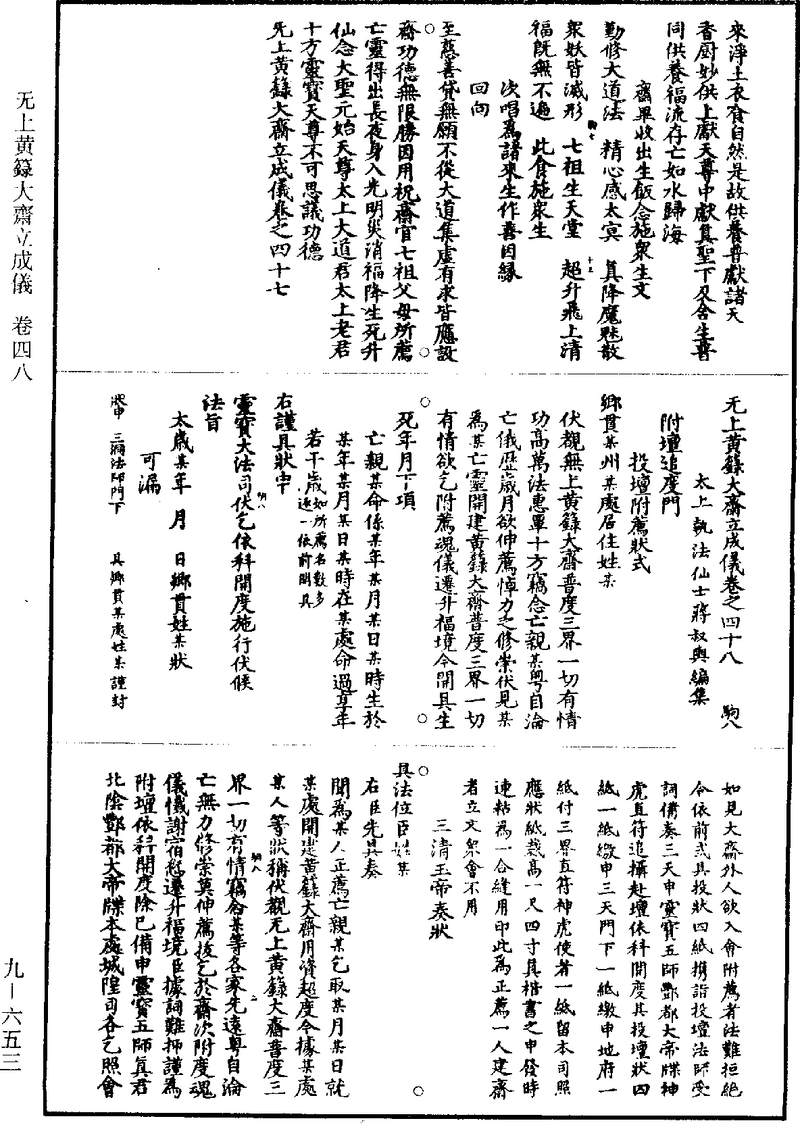 无上黄籙大齋立成儀 卷四八
九－六五三
來淨土衣食自然是故供養普獻諸天
香厨妙供上獻天尊中獻真聖下及含生普
同供養福流存亡如水歸海
齋畢收出生飯念施衆生文
勤修大道法 精心感太冥 真降魔魅散
衆妖皆滅形 七祖生天堂 超升飛上清
福既無不遍 此食施衆生
次唱爲諸來生作善因緣
回向
至慈善貸無願不從大道集虛有求皆應設
齋功德無限勝因用祝齋官七祖父母所薦
亡靈得出長夜身入光明災消福降生死升
仙念大聖元始天尊太上大道君太上老君
十方靈寶天尊不可思議功德
无上黄籙大齋立成儀卷之四十七
无上黄籙大齋立成儀卷之四十八 駒八
太上執法仙士蔣叔輿編集
附壇追度門
投壇附薦狀式
鄉貫某州某處居住姓某
伏覩無上黄籙大齋普度三界一切有情
功高萬法惠覃十方竊念亡親某粤自淪
亡儀歷歲月欲伸薦悼力乏修崇伏見某
爲某亡靈開建黄籙大齋普度三界一切
有情欲乞附薦魂儀遷升福境今開具生
死年月下項
亡親某命係某年某月某日某時生於
某年某月某日某時在某處命過享年
若干歲如所薦名數多連一依前開具
右謹具狀申
靈寶大法司伏乞依科開度施行伏候
法旨
太歲某年 月 日鄉貫姓某狀
可漏
狀申 三洞法師門下 具鄉貫某處姓某謹封
如見大齋外人欲入會附薦者法難拒絶
令依前式具投狀四紙携詣投壇法師受
詞備奏三天申靈寶五師酆都大帝牒神
虎直符追攝赴壇依科開度其投壇狀四
紙一紙繳申三天門下一紙繳申地府一
紙付三界直符神虎使者一紙留本司照
應狀紙裁高一尺四寸真楷書之申發時
連粘爲一合縫用印此爲正薦一人建齋
者立文衆會不用
三清玉帝奏狀
具法位臣姓某
右臣先具奏
聞爲某人正薦亡親某乞取某月某日就
某處開建黄籙大齋用資超度今據某處
某人等狀稱伏覩无上黄籙大齋普度三
界一切有情竊念某等各家先遠粤自淪
亡無力修崇莫伸薦拔乞於齋次附度魂
儀懺謝宿愆遷升福境臣據詞難抑謹爲
附壇依科開度除已備申靈寶五師真君
北陰酆都大帝牒本處城隍司各乞照會